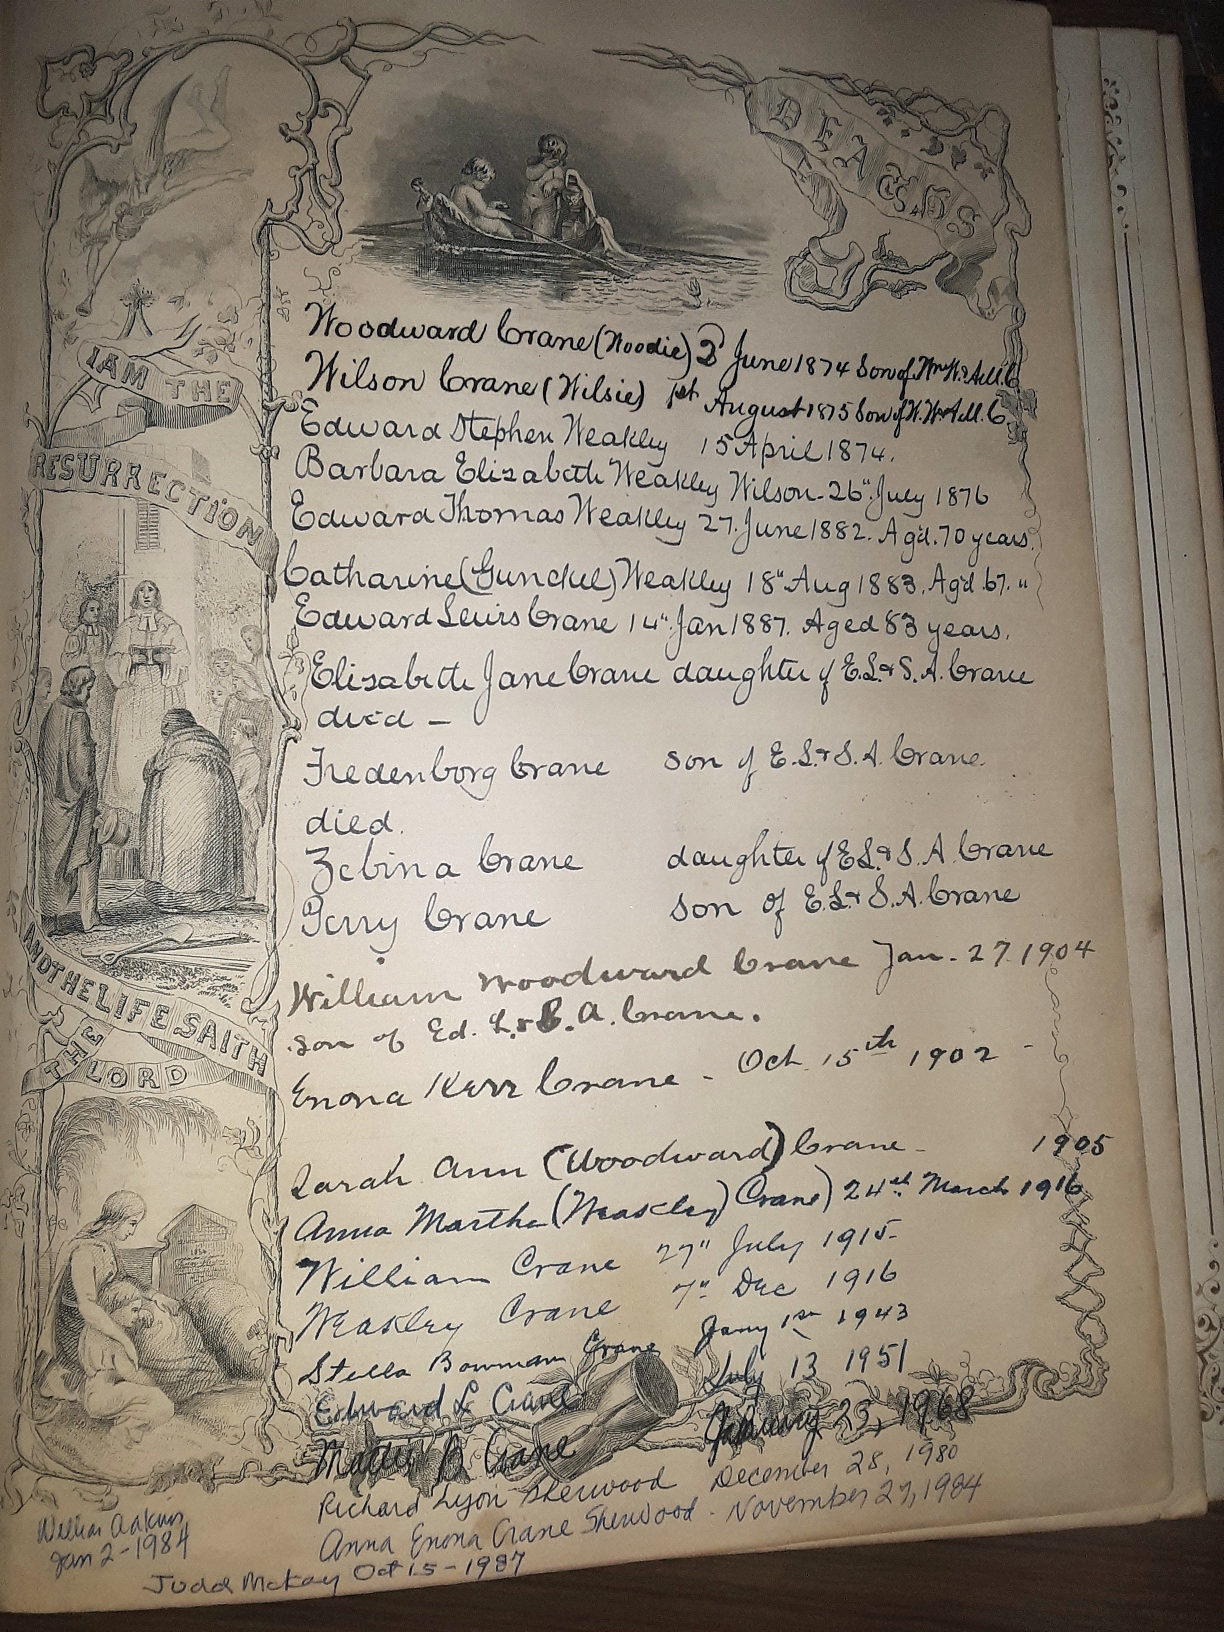 DEATHS
I AM THE
RESURRECTION
AND THE LIFE SAITH
THE LORD
Woodward Crane (Woodie) 2 June 1874 Son of Wm W. & A.M. C
Wilson Crane (Wilsie) 1st August 1875 Son of W. W. & A.M. C.
Edward Stephen Weakley 15 April 1874.
Barbara Elizabeth Weakley Wilson - 26" July 1876
Edward Thomas Weakley 27. June 1882. Ag'd. 70 years.
Catharine (Gunckel) Weakley 18" Aug 1883. Ag'd 67. "
Edward Lewis Crane 14" Jan 1887. Aged 83 years.
Elizabeth Jane Crane daughter of E.L. & S.A. Crane
died -
Fredenborg Crane son of E.L. & S.A. Crane.
died.
Zebina Crane daughter of E.L. & S.A. Crane
Perry Crane son of E.L. & S.A. Crane
William Woodward Crane Jan. 27. 1904
son of Ed. L. & S. A. Crane.
Enona Kerr Crane - Oct. 15th 1902 -
Sarah Ann (Woodward) Crane - 1905
Anna Martha (Weakley) Crane) 24th March 1916
William Crane 27" July 1915-
Weakley Crane 7" Dec 1916
Stella Bowman Crane Jany 1st 1943
Edward L Crane July 13 1951
Mattie B Crane January 23, 1968
Richard Lyon Sherwood December 28, 1980
Anna Enona Crane Sherwood - November 27, 1984
William
Jan 2-1984
Judd McKay Oct 15-1987